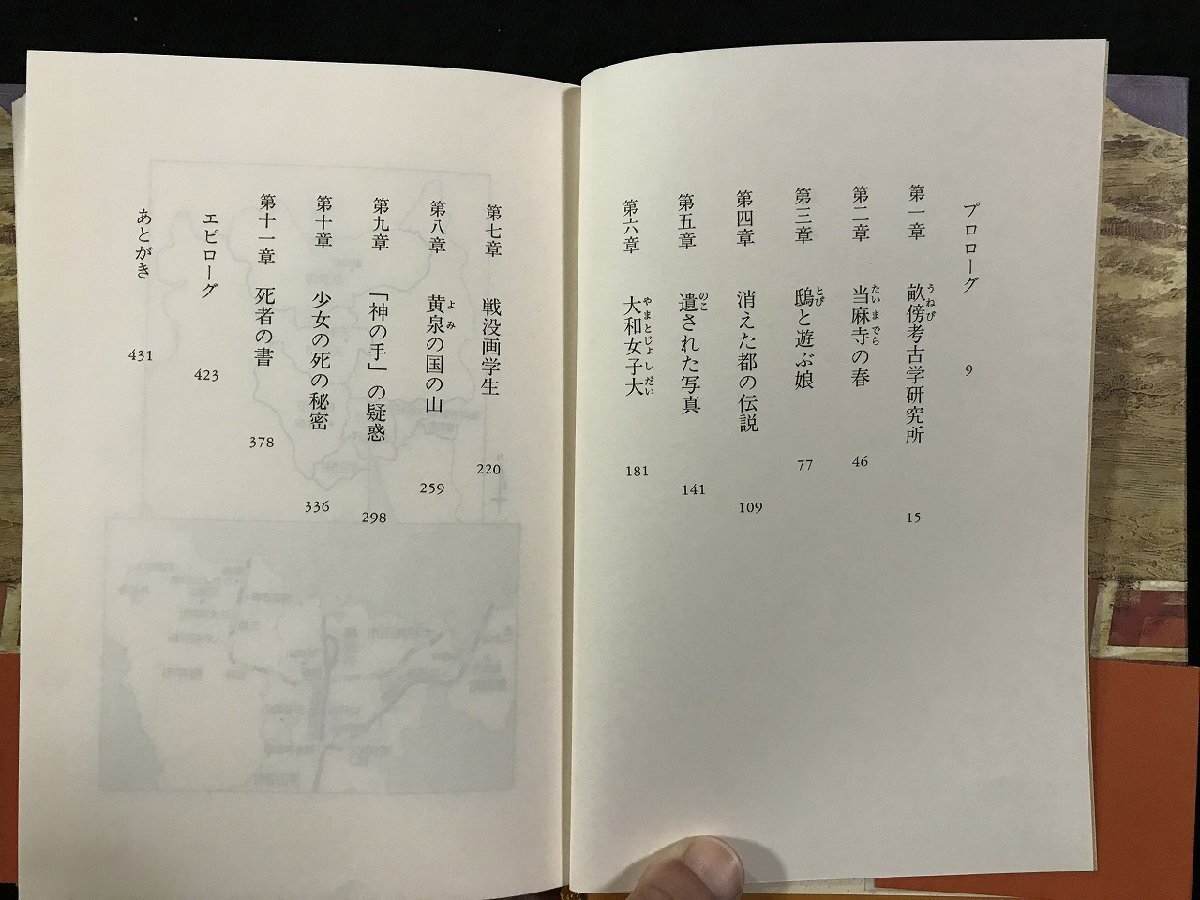 プロローグ 9
第一章 畝傍考古学研究所 15
うねび
第二章 当麻寺の春 46
たいまでら
第三章 鴟と遊ぶ娘 77
とび
第四章 消えた都の伝説 109
第五章 遺された写真 141
のこ
第六章 大和女子大 181
やまとじょしだい
第七章 戦没画学生 220
第八章 黄泉の国の山 259
よみ
第九章 「神の手」の疑惑 298
第十章 少女の死の秘密 336
第十一章 死者の書 378
エピローグ 423
あとがき 431